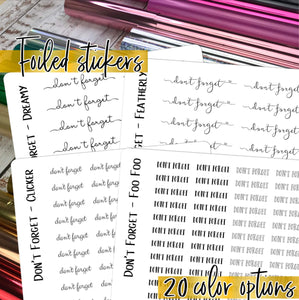 Foiled stickers
Don't Forget - Dreamy
don't forget
don't forget
don't forget
don't forget
Don't Forget - Featherly
don't forget don't forget
don't forget don't forget
don't forget don't forget
don't forget don't forget
Don't Forget - Clicker
don't forget don't forget
don't forget don't forget
don't forget don't forget
don't forget don't forget
don't forget
don't forget
don't forget
don't forget
Don't Forget - Foo Foo
DON'T FORGET DON'T FORGET DON'T FORGET DON'T FORGET
DON'T FORGET DON'T FORGET DON'T FORGET DON'T FORGET
DON'T FORGET DON'T FORGET DON'T FORGET DON'T FORGET
DON'T FORGET DON'T FORGET DON'T FORGET DON'T FORGET
DON'T FORGET DON'T FORGET DON'T FORGET DON'T FORGET
DON'T FORGET DON'T FORGET DON'T FORGET DON'T FORGET
DON'T FORGET DON'T FORGET DON'T FORGET DON'T FORGET
20 color options